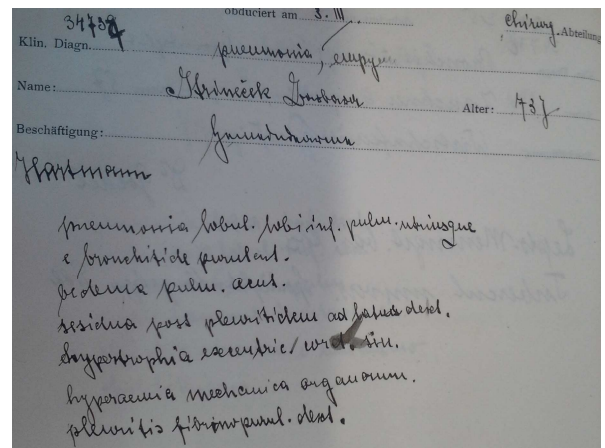 obduciert am 3. III.
chirurg. Abteilung
Klin. Diagn. pneumonia, empyem
Name: Barbara
Alter: 73 J
Beschäftigung: Gemeindearme
Hartmann
pneumonia lobul. lobi inf. pulm. utriusque
e bronchitide purulent.
oedema pulm. acut.
residua post pleuritidem ad latus dext.
hypertrophia excentric. cord. sin.
hyperaemia mechanica organorum.
pleuritis fibrinopurul. dext.